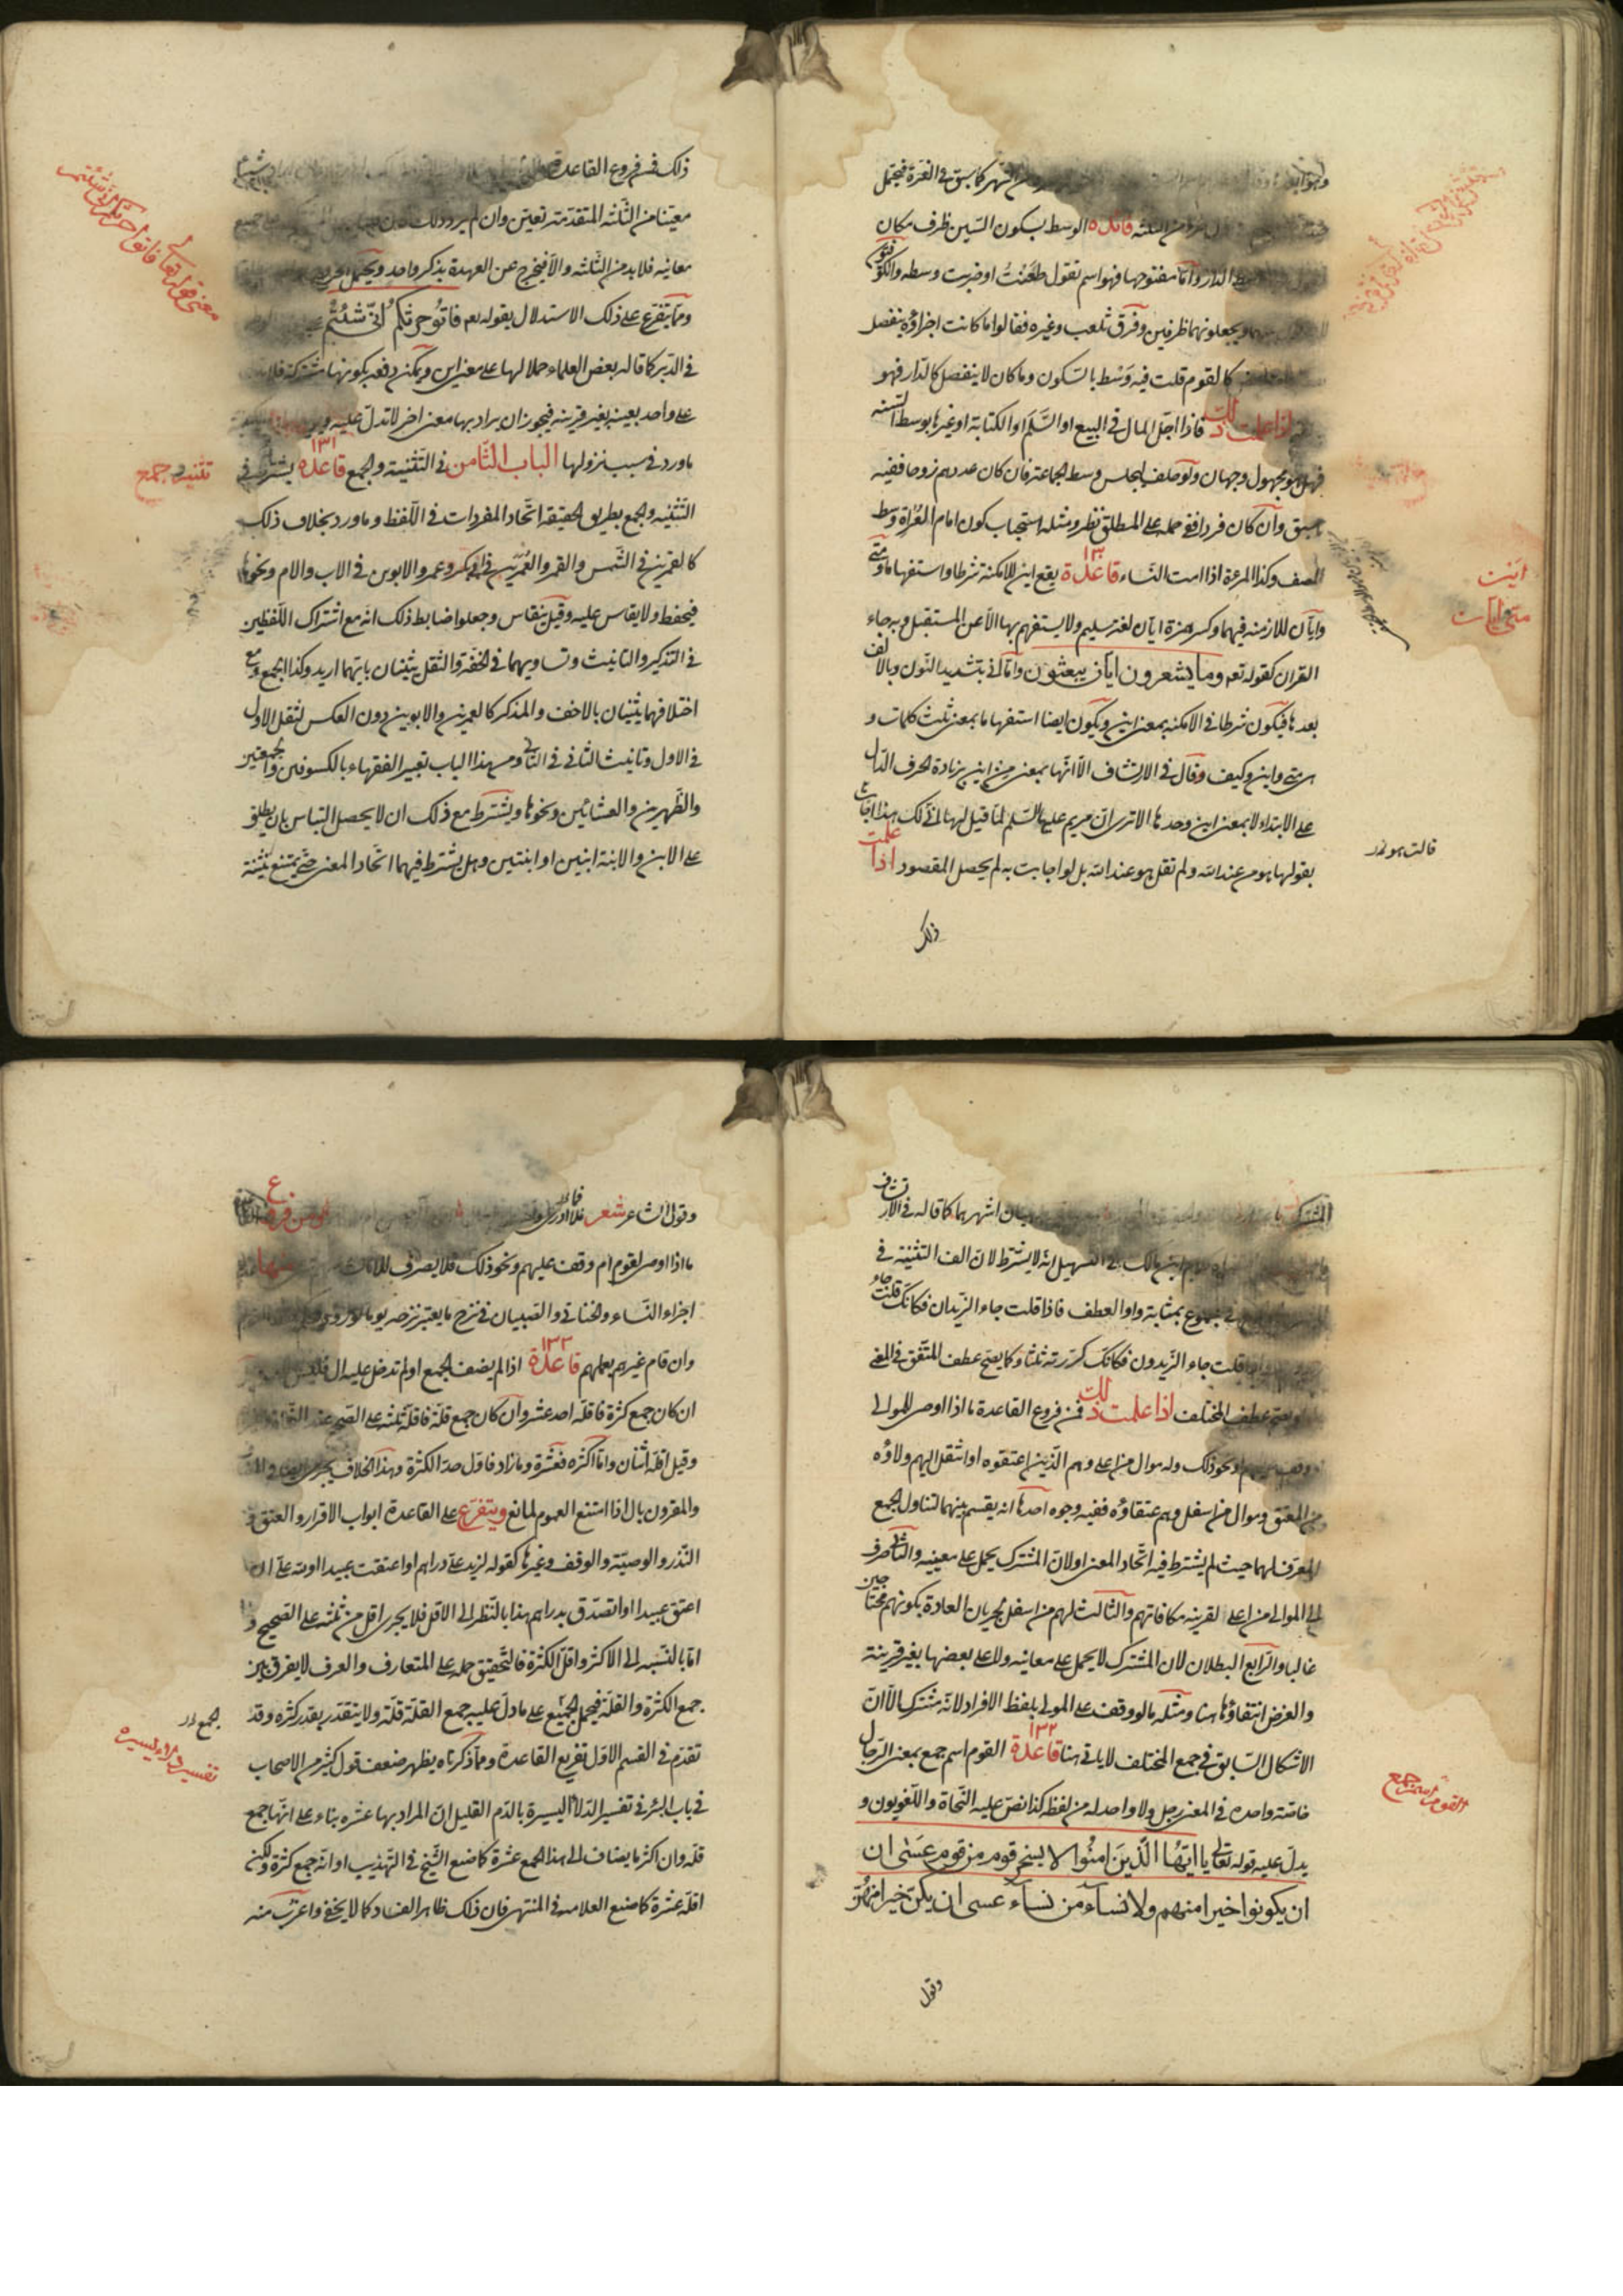 من الشهر كما سبق في الغرة فيحتمل
من الثلثه فائدة الوسط بسكون السين ظرف مكان
الدار واما مفتوحها فهو اسم تقول طعنت او ضربت وسطه والكوفيون
ويجعلونهما ظرفين وفرق ثعلب وغيره فقالوا ما كانت اجزاؤه ينفصل
كالقوم قلت فيه وسط بالسكون وما كان لا ينفصل كالدار فهو
اذا علمت ذلك فاذا اجل المال في البيع او السلم او الكتابة او غيرها بوسط السنه
فهل هو مجهول وجهان ولو حلف ليجلس وسط الجماعة فان كان عددهم زوجا ففيه
سبق وان كان فردا ففي حمله على المطلق نظر ومثله استحباب كون امام العراة وسط
الصف وكذا المرءة اذا امت النساء قاعدة ١٣٠ يقع اين للامكنة شرطا واستفهاما ومتى
وايان للازمنه فيهما وكسر همزة ايان لغة سليم ولا يستفهم بها الا عن المستقبل وبه جاء
القران كقوله تعه وما يشعرون ايان يبعثون واما انى بتشديد النون وبالالف
بعدها فيكون شرطا في الامكنه بمعنى اين ويكون ايضا استفهاما بمعنى ثلث كلمات و
هي متى واين وكيف وقال في الارتشاف الا انها بمعنى من اين بزيادة الحرف الدال
على الابتداء لا بمعنى اين وحدها الا ترى ان مريم عليها السلم لما قيل لها انى لك هذا اجابت
بقولها هو من عند الله ولم تقل هو عند الله بل لو اجابت به لم يحصل المقصود اذا علمت
ذلك
اين
متى ايان
قالت هو
ذلك فمن فروع القاعدة
معينا من الثلثه المتقدمة تعين وان لم يرد ذلك
معانيه فلا بد من الثلثه والا فيخرج عن العهدة بذكر واحد ويحتمل
ومما يتفرع على ذلك الاستدلال بقوله تعه فاتوا حرثكم انى شئتم
في الدبر كما قاله بعض العلماء حملا لها على معنى اين ويمكن دفعه بكونها مشتركة فلا
على واحد بعينه بغير قرينه فيجوز ان يراد بها معنى اخر لا تدل عليه
ما ورد في سبب نزولها الباب الثامن في التثنية والجمع قاعدة ١٣١ يشترط في
التثنيه والجمع بطريق الحقيقة اتحاد المفردات في اللفظ وما ورد بخلاف ذلك
كالقمرين في الشمس والقمر والعمرين في ابي بكر وعمر والابوين في الاب والام ونحوها
فيحفظ ولا يقاس عليه وقيل ينقاس وجعلوا ضابط ذلك انه مع اشتراك اللفظين
في التذكير والتانيث وتساويهما في الخفة والثقل يثنيان بايتهما اريد وكذا الجمع ومع
اختلافهما يثنيان بالاخف والمذكر كالعمرين والابوين دون العكس لثقل الاول
في الاول وتانيث الثاني في الثاني ومن هذا الباب تعبير الفقهاء بالكسوفين والجمعتين
والظهرين والعشائين ونحوها ويشترط مع ذلك ان لا يحصل التباس بان يطلق
على الابن والابنة ابنين او ابنتين وهل يشترط فيهما اتحاد المعنى حتى يمتنع تثنية
معنى قوله تعالى فاتوا حرثكم انى شئتم
تثنيه و جمع
المشترك اشهرهما كما قاله في الارتشاف
كلام ابن مالك في التسهيل انه لا يشترط لان الف التثنية في
في الجموع بمثابة واو العطف فاذا قلت جاء الزيدان فكانك قلت جاء
واذا قلت جاء الزيدون فكانك كررته ثلثا وكما يصح عطف المتفق في المعنى
يصح عطف المختلف اذا علمت ذلك فمن فروع القاعدة ما اذا اوصى للموالي
او نحو ذلك وله موال من اعلى وهم الذين اعتقوه او انتقل اليهم ولاؤه
من المعتق وموال من اسفل وهم عتقاؤه ففيه وجوه احدها انه يقسم بينهما لتناول الجمع
المعرف لهما حيث لم يشترط فيه اتحاد المعنى او لان المشترك يحمل على معنييه والثاني صرف
الى الموالي من اعلى لقرينة مكافاتهم والثالث لهم من اسفل لجريان العادة بكونهم محتاجين
غالبا والرابع البطلان لان المشترك لا يحمل على معانيه ولا على بعضها بغير قرينة
والغرض انتفاؤها هنا ومثله ما لو وقف على المولى بلفظ الافراد لانه مشترك الا ان
الاشكال السابق في جمع المختلف لا ياتي هنا قاعدة ١٣٢ القوم اسم جمع بمعنى الرجال
خاصة واحده في المعنى رجل ولا واحد له من لفظه كذا نص عليه النحاة واللغويون و
يدل عليه قوله تعالى يا ايها الذين امنوا لا يسخر قوم من قوم عسى ان
ان يكونوا خيرا منهم ولا نساء من نساء عسى ان يكن خيرا منهن
وقول
القوم اسم جمع
وقول الشاعر شعر
ما اذا اوصى لقوم او وقف عليهم ونحو ذلك فلا يصرف للاناث ومنها
اجزاء النساء والخناثى والصبيان في نزح ما يعتبر نزحه يوما
وان قام غيرهم بعملهم قاعدة ١٣٣ اذا لم يضف الجمع او لم تدخل عليه ال
ان كان جمع كثرة فاقله احد عشر وان كان جمع قلة فاقله ثلثه على الصحيح عند
وقيل اقله اثنان واما اكثره فعشرة وما زاد فاول حد الكثرة وهذا الخلاف يجري
والمقرون بال اذا امتنع العموم لمانع ويتفرع على القاعدة ابواب الاقرار والعتق و
النذر والوصية والوقف وغيرها كقوله لزيد علي دراهم او اعتقت عبيدا او لله علي ان
اعتق عبيدا او اتصدق بدراهم هذا بالنظر الى الاقل فلا يجري اقل من ثلثه على الصحيح و
اما بالنسبه الى الاكثر واقل الكثرة فالتحقيق حمله على المتعارف والعرف لا يفرق بين
جمع الكثرة والقلة فيحمل الجميع على ما دل عليه جمع القلة قلة ولا يتقدر بقدر كثره وقد
تقدم في القسم الاول تفريع القاعدة ومما ذكرناه يظهر ضعف قول كثير من الاصحاب
في باب البئر في تفسير الدلاء اليسيرة بالدم القليل ان المراد بها عشره بناء على انها جمع
قلة وان اكثر ما يضاف الى هذا الجمع عشرة كما صنع الشيخ في التهذيب او انه جمع كثرة ولكن
اقله عشرة كما صنع العلامه في المنتهى فان ذلك ظاهر الفساد كما لا يخفى واغرب منه
الجمع
تفسير دلاء يسيره